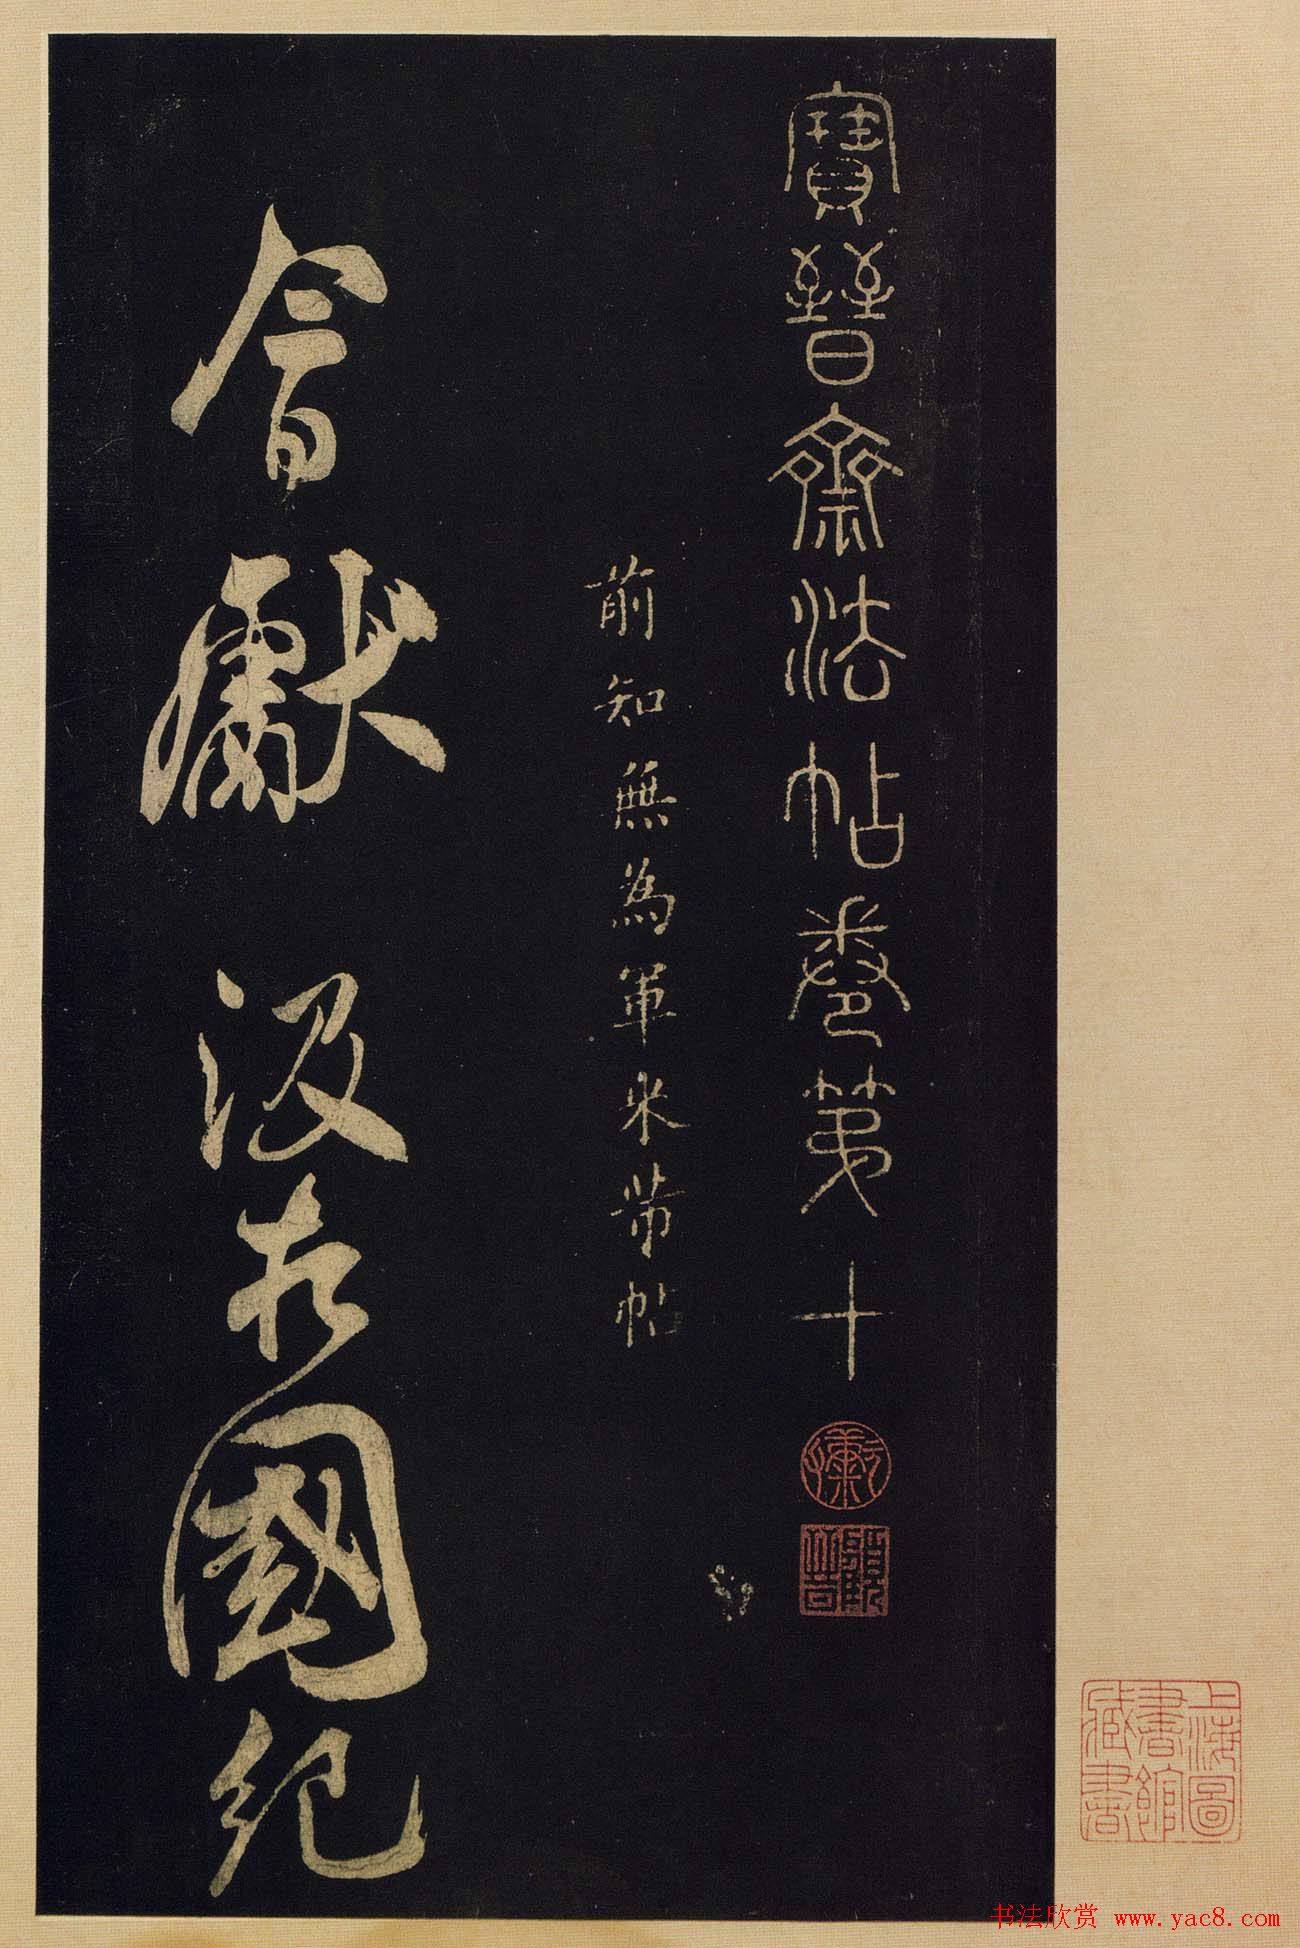 寶晉齋法帖卷第十
前知無為軍米芾帖
會獻汲於國紀
上海圖書館藏書
书法欣赏 www.yac8.com